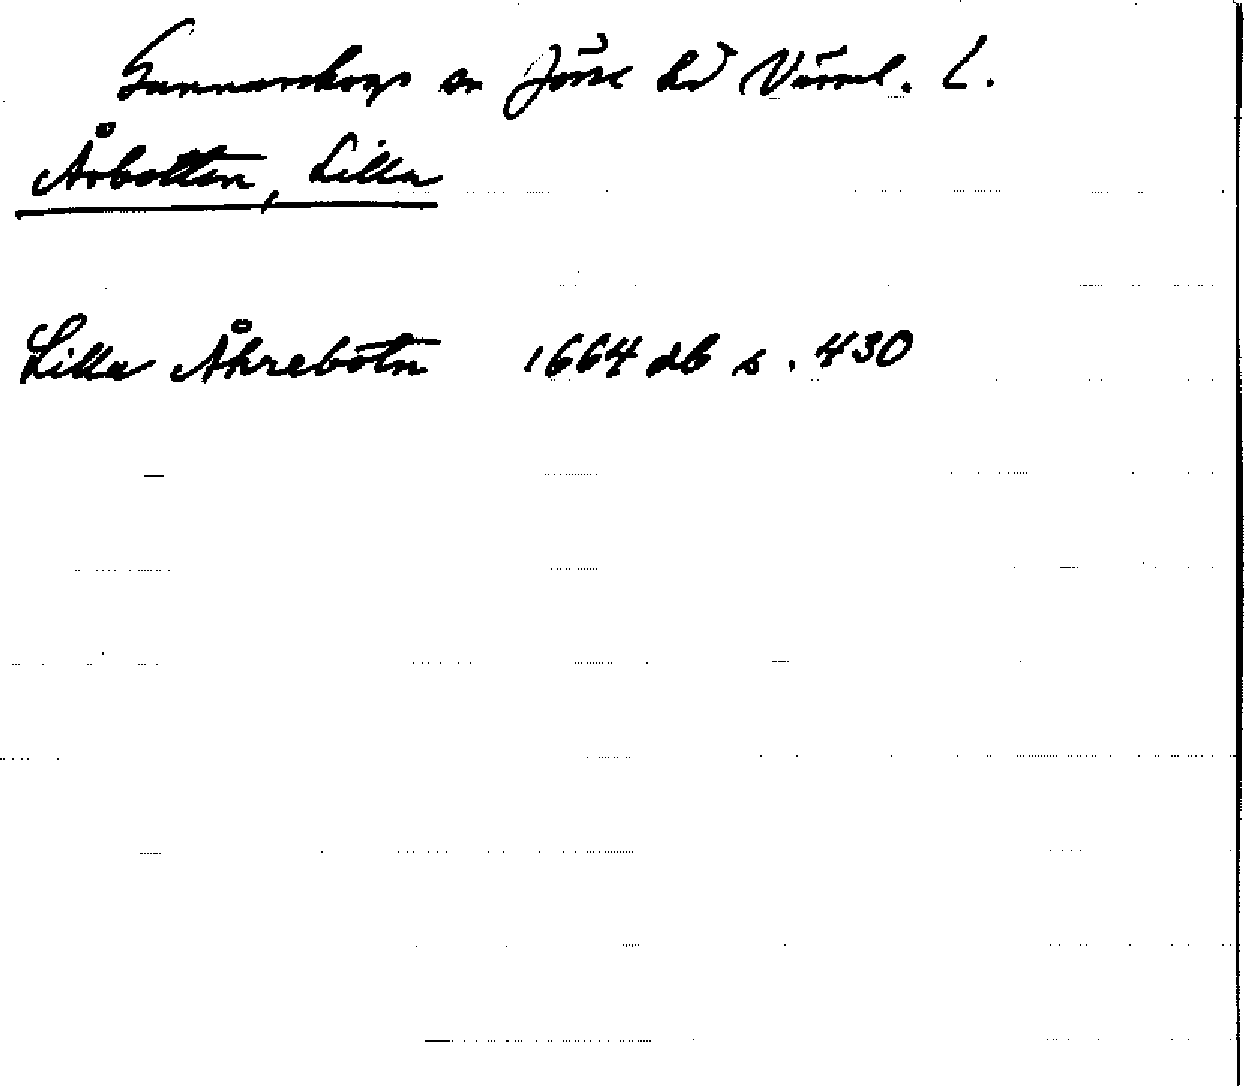 Gunnarskogs sn Jösse hd Värml. L.
Årbotten, Lilla
Lilla Åhrebotn 1664 db s. 430